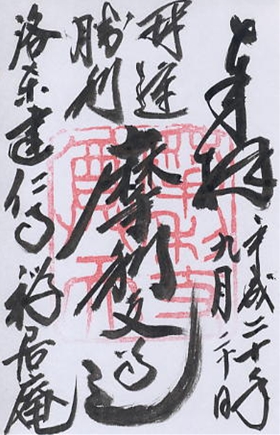 奉拝
平成二十年
九月二十日
開運
勝利
摩利支
洛东建仁寺 禅居庵